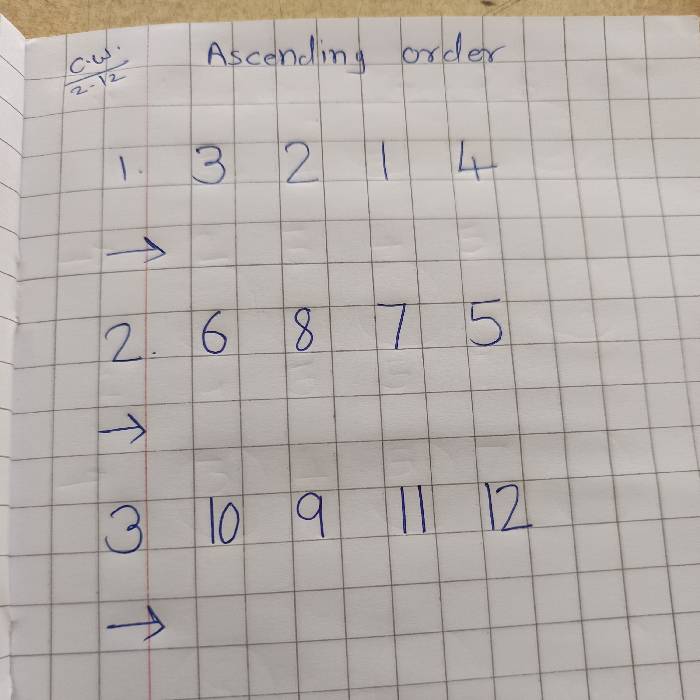 C.W. Ascending order
2-12
1. 3 2 1 4
→
2. 6 8 7 5
→
3 10 9 11 12
→